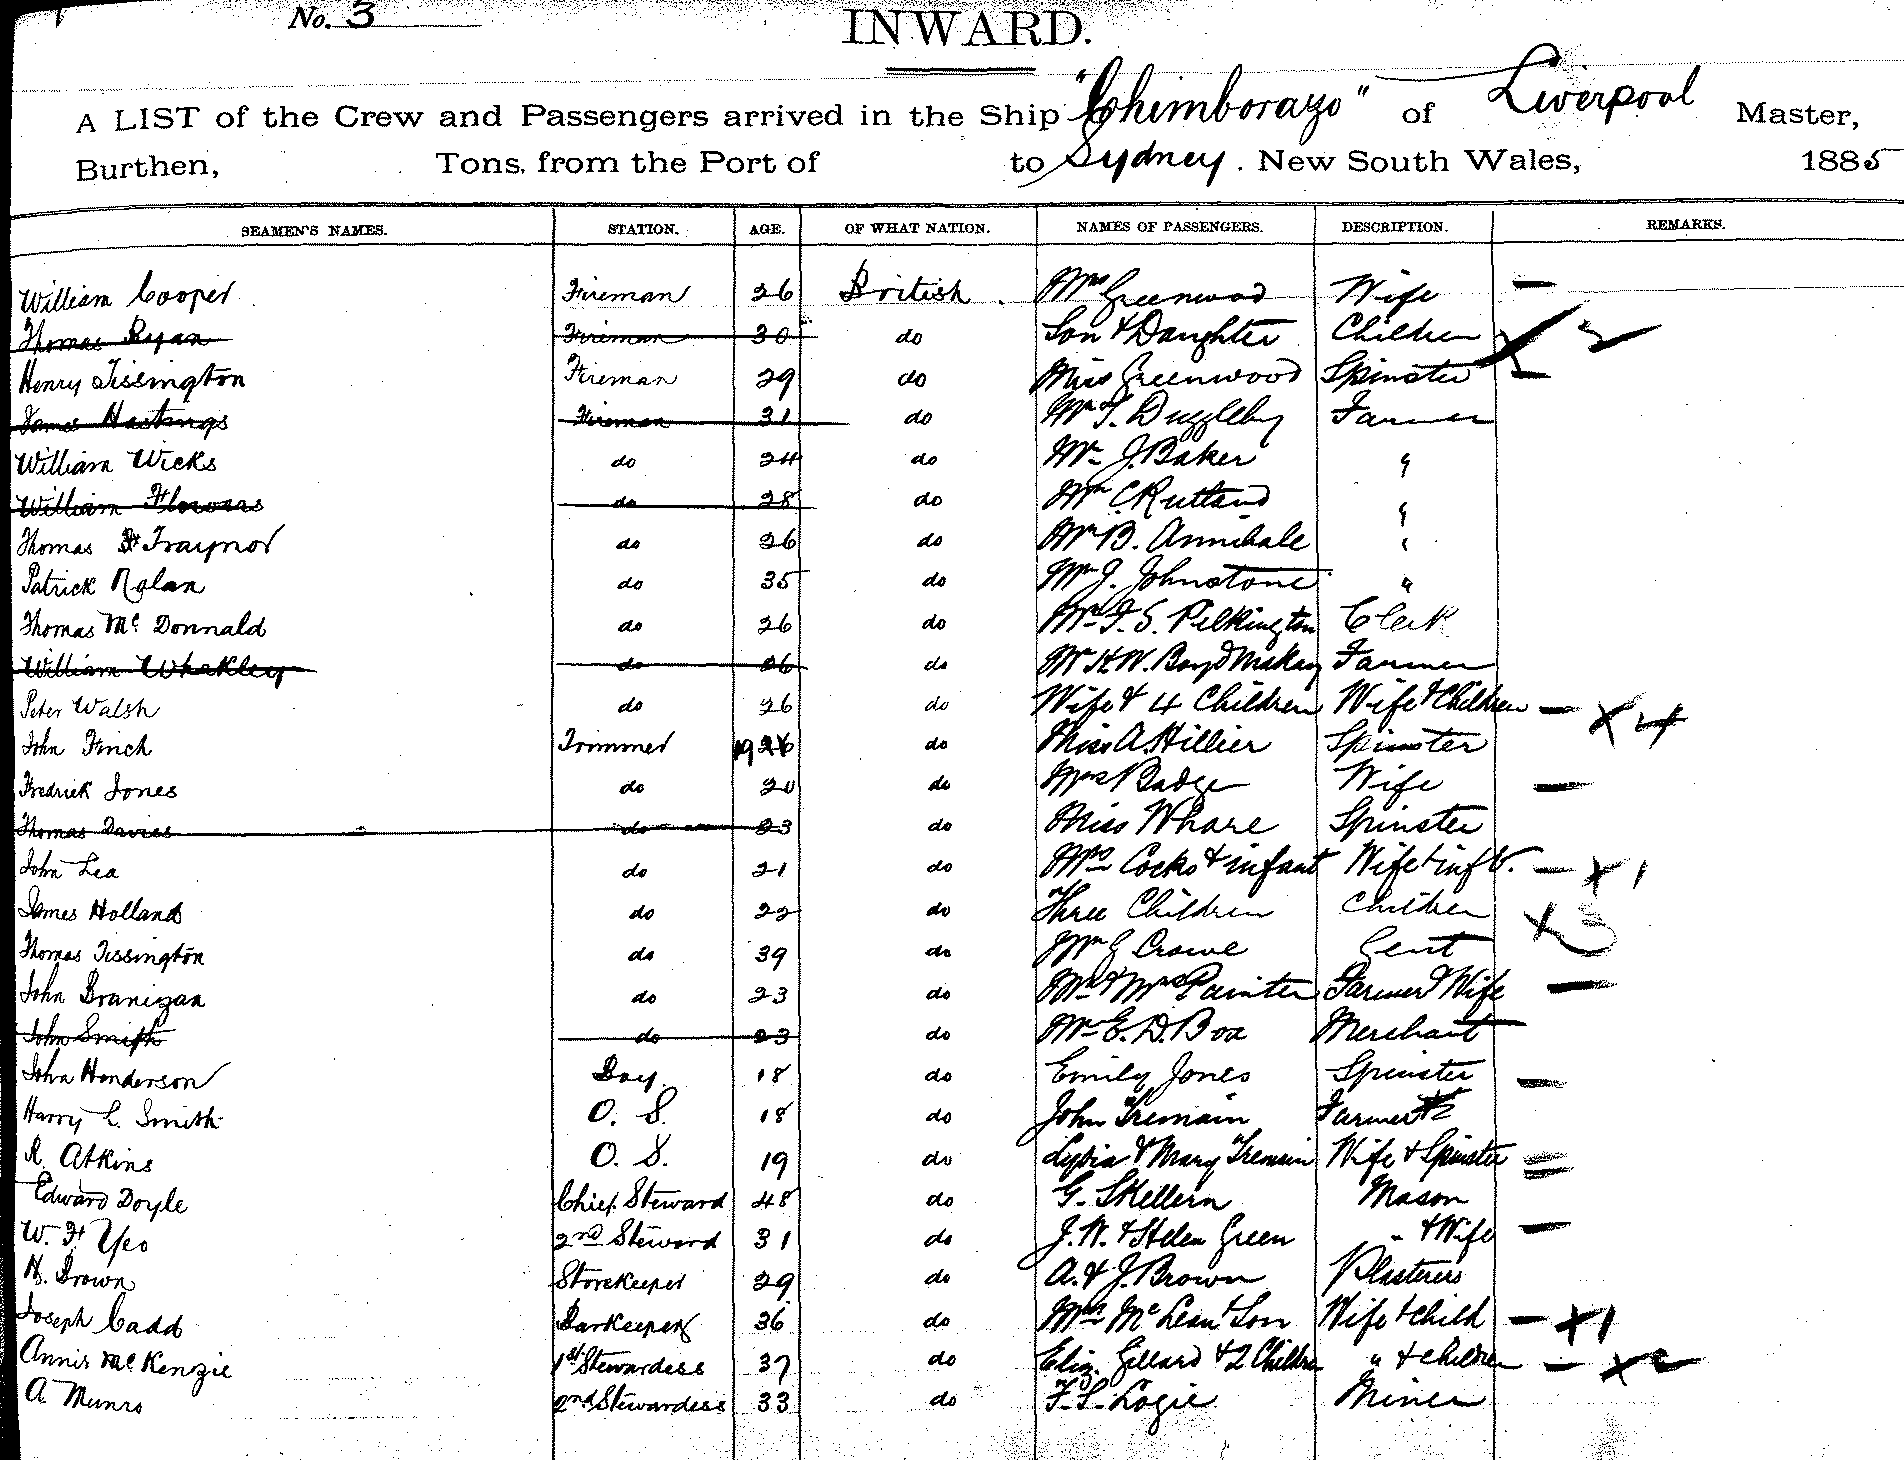 No. 3
INWARD.
A LIST of the Crew and Passengers arrived in the Ship "Chimborazo" of Liverpool Master,
Burthen, Tons, from the Port of to Sydney. New South Wales, 1885
SEAMEN'S NAMES. STATION. AGE. OF WHAT NATION. NAMES OF PASSENGERS. DESCRIPTION. REMARKS.
William Cooper Fireman 26 British. Mrs Greenwood Wife —
Thomas Ryan Fireman 30 do Son & Daughter Children X 2
Henry Tissington Fireman 29 do Miss Greenwood Spinster —
James Hastings Fireman 31 do Mr T. Duggleby Farmer
William Wicks do 24 do Mr J. Baker "
William Flowers do 28 do Mr C. Rutland "
Thomas Traynor do 26 do Mr B. Annibale "
Patrick Nolan do 35 do Mr J. Johnstone "
Thomas Mc Donnald do 26 do Mr F. S. Pilkington Clerk
William Whakley do 26 do Mr H. W. Boyd Makay Farmer
Peter Walsh do 26 do Wife & 4 Children Wife & Children — X 4
John Finch Trimmer 19 26 do Miss A. Hillier Spinster
Fredrick Jones do 20 do Mrs Badge Wife —
Thomas Davies do 23 do Miss Whare Spinster
John Lea do 21 do Mrs Cocks & infant Wife & inft. — X 1
James Holland do 22 do Three Children Children X 3
Thomas Tissington do 39 do Mr G Crowe Gent
John Branigan do 23 do Mr & Mrs Painter Farmer & Wife —
John Smith do 23 do Mr E. D. Box Merchant
John Henderson Boy. 18 do Emily Jones Spinster —
Harry C. Smith O. S. 18 do John Tremain Farmer
R. Atkins O. S. 19 do Lydia & Mary Tremain Wife & Spinster =
Edward Doyle Chief Steward 48 do G. Skellern Mason
W. H Yeo 2nd Steward 31 do J. W. & Helen Green " & Wife —
H. Brown Storekeeper 29 do A. & J. Brown Plasterers
Joseph Cadd Barkeeper 36 do Mrs Mc Lean & Son Wife & Child — X 1
Annie Mc Kenzie 1st Stewardess 37 do Eliz. Gillard & 2 Children " & Children — X 2
A Munro 2nd Stewardess 33 do F. S. Logie Miner